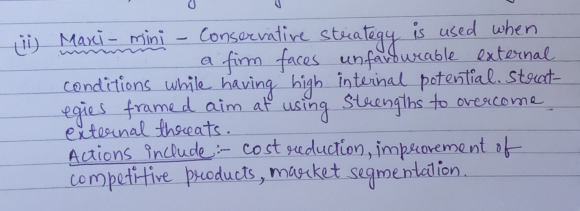 (ii) Maxi-mini - Conservative strategy is used when
a firm faces unfavourable external
conditions while having high internal potential. Strat-
egies framed aim at using strengths to overcome
external threats.
Actions include :- cost reduction, improvement of
competitive products, market segmentation.